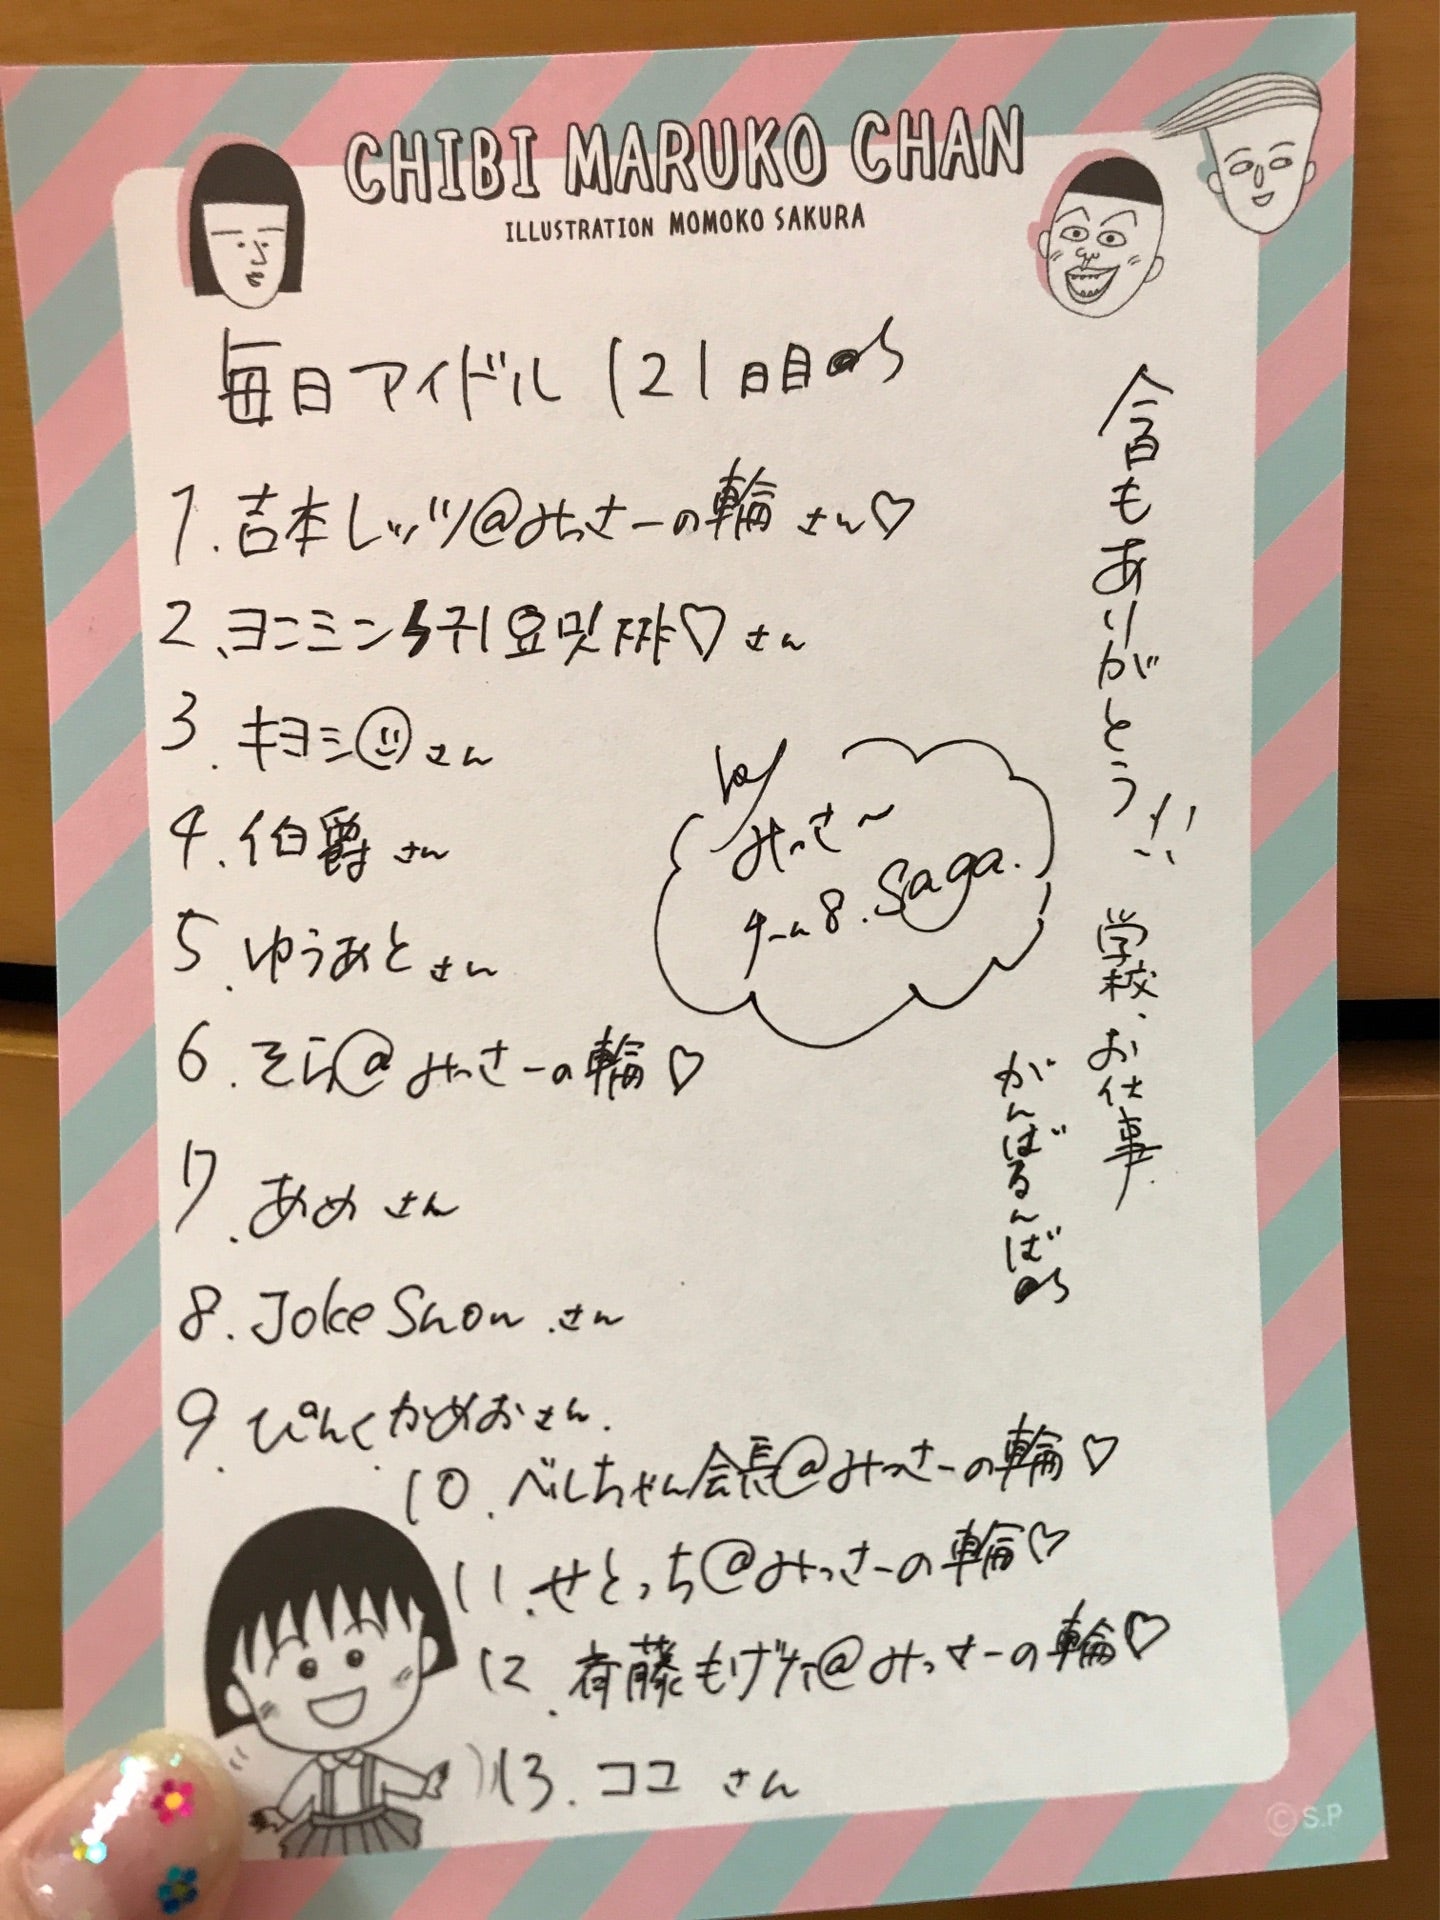 CHIBI MARUKO CHAN
ILLUSTRATION MOMOKO SAKURA
毎日アイドル 121日目
1. 吉本レッツ@みっさーの輪 さん♡
2. ヨンミン 귀요밋 ♡ さん
3. キヨシ さん
4. 伯爵 さん
5. ゆうあと さん
6. そら@みっさーの輪♡
7. あめ さん
8. Joke Show さん
9. ぴんくかめおさん.
10. べしちゃん会長@みっさーの輪♡
11. せとっち@みっさーの輪♡
12. 斉藤もげ @みっさーの輪♡
13. ココ さん
by
みっさ〜
チーム8. Saga.
今日もありがとう!!
学校、お仕事
がんばるんば
© S.P